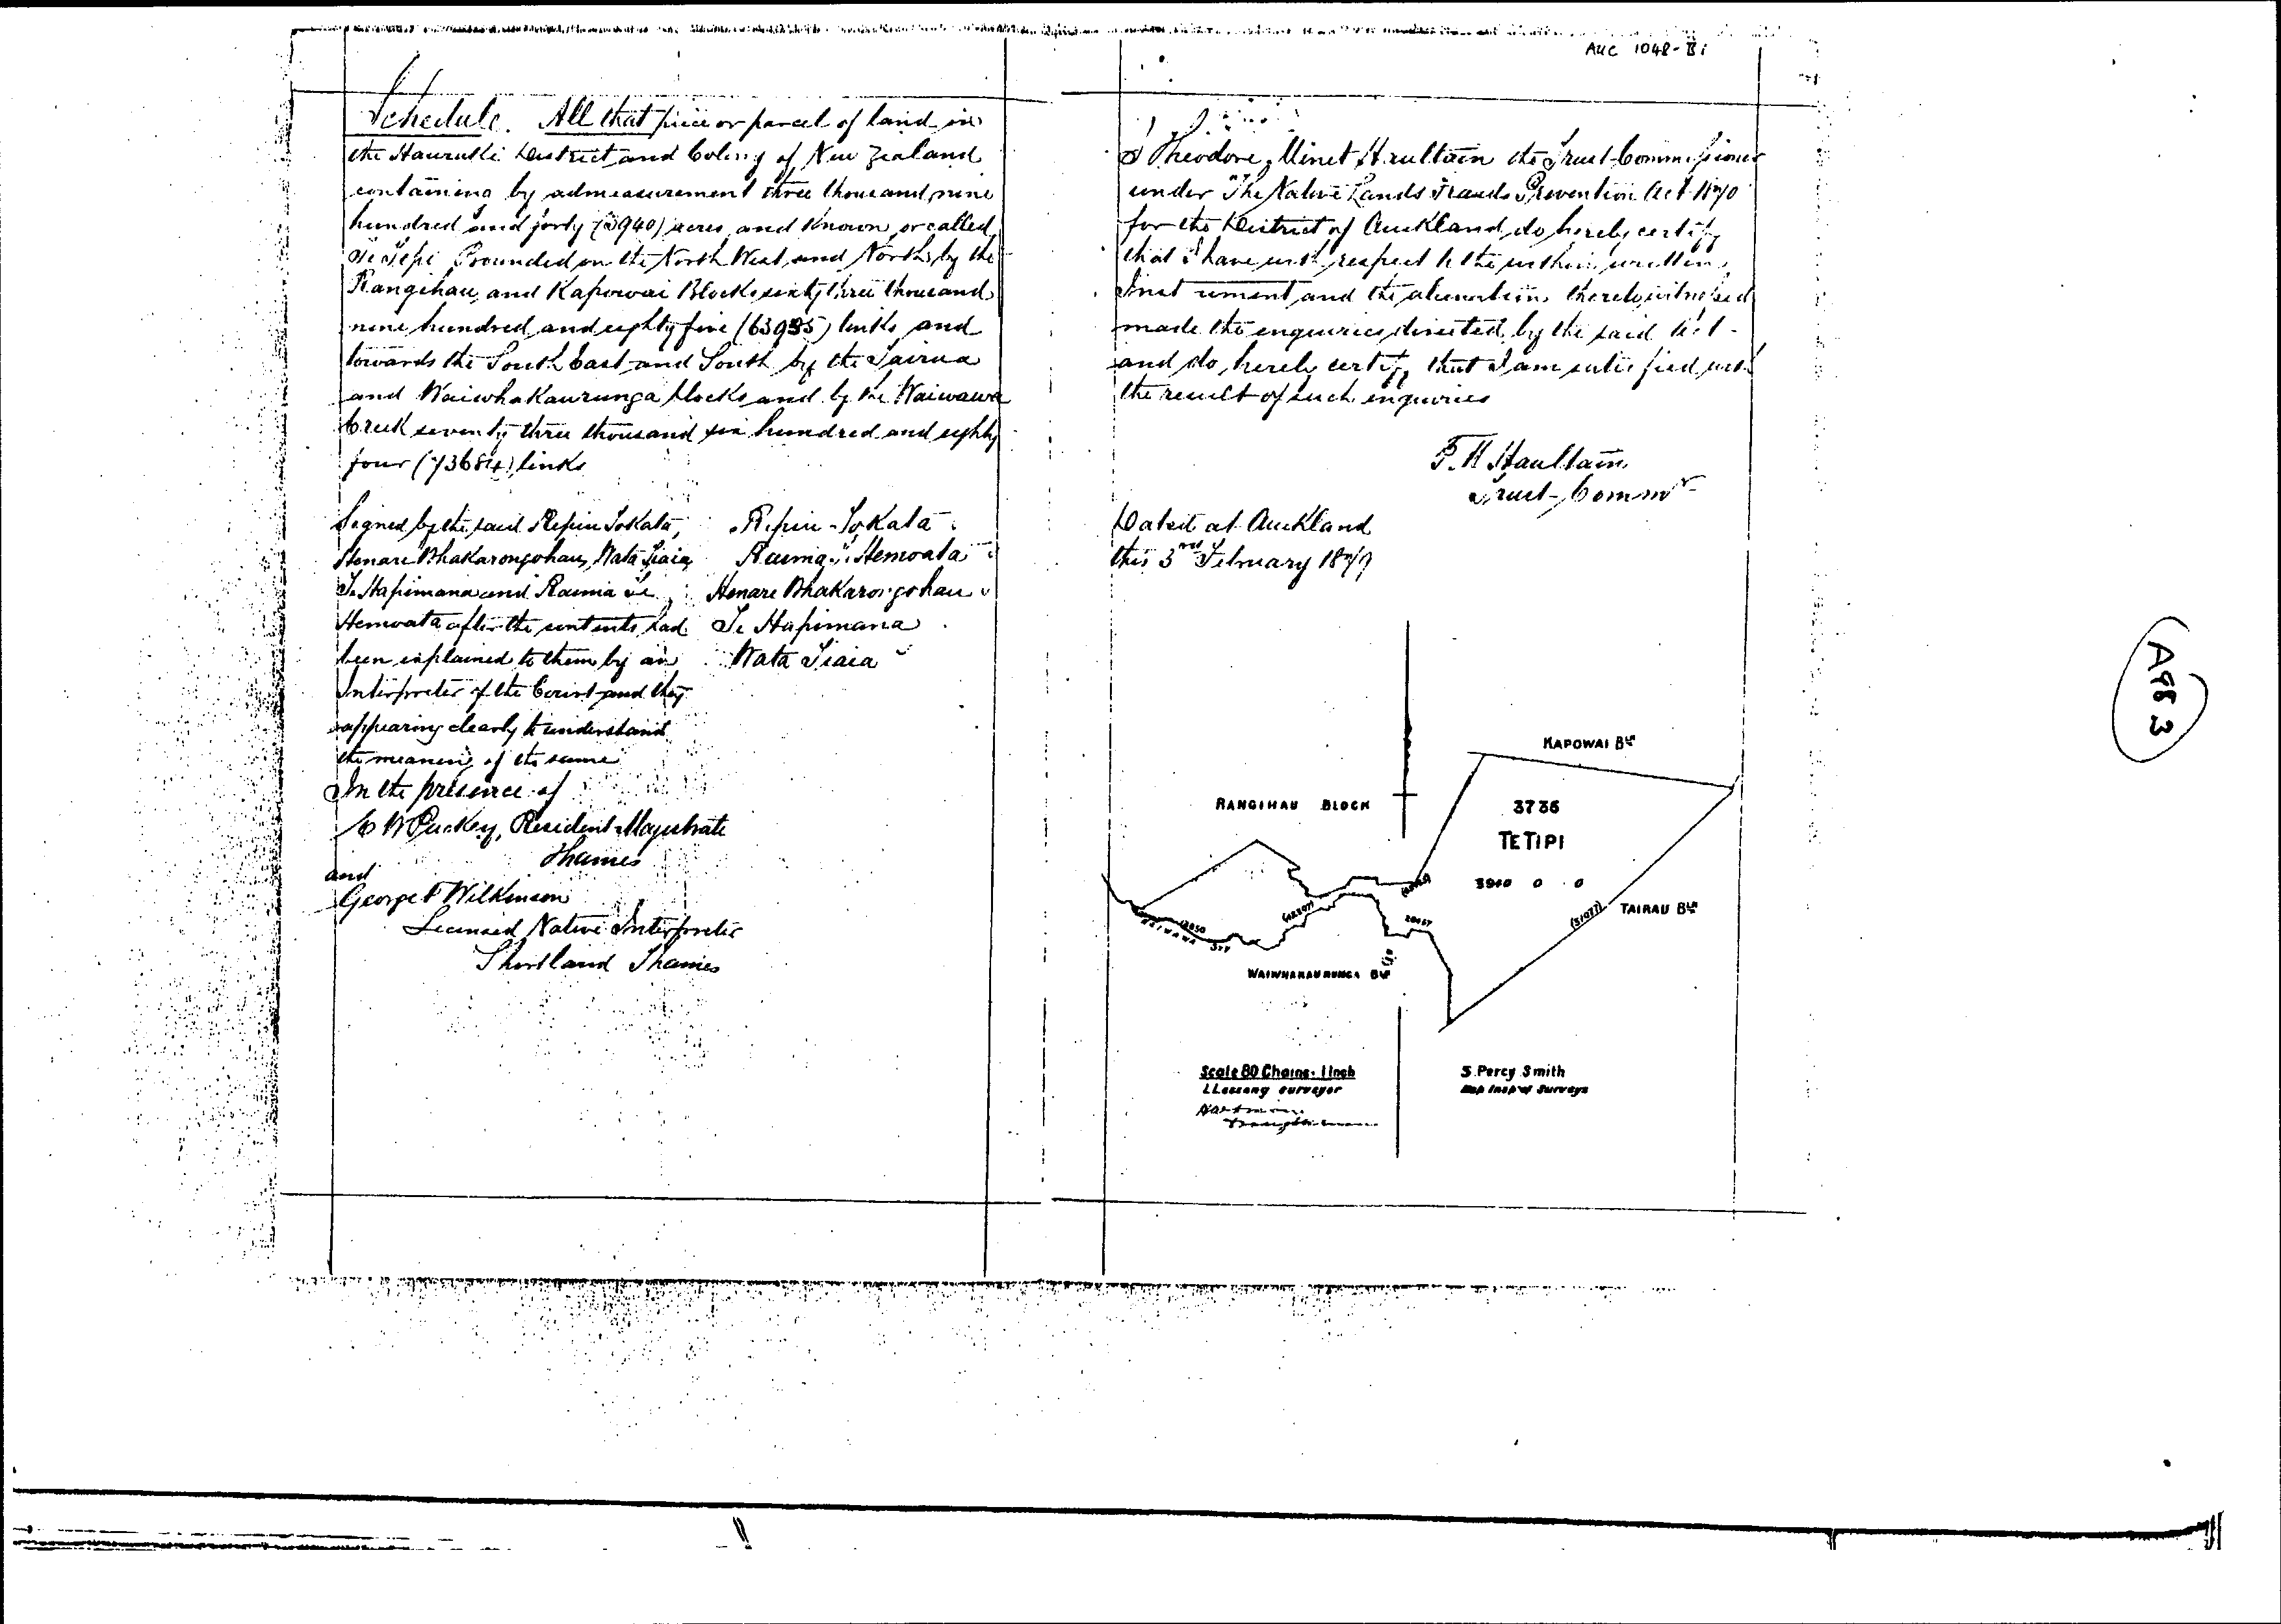 AUC 1048-B1
Schedule. All that piece or parcel of land in
the Hauraki District and Colony of New Zealand
containing by admeasurement three thousand nine
hundred and forty (3940) acres and Known or called
Te Tipi Bounded on the North West and North by the
Rangihau and Kapowai Blocks sixty three thousand
nine hundred and eighty five (63985) links and
towards the South East and South by the Tairua
and Waiwhakaurunga blocks and by the Waiwawa
Creek seventy three thousand six hundred and eighty
four (73684) links
Signed by the said Repiu Tokata,
Henare Whakarongohau, Wata Tiaia
Te Hapimana and Raima Te
Hemoata after the contents had
been explained to them by an
Interpreter of the Court and they
appearing clearly to understand
the meaning of the same
Repiu Tokata
Raima Te Hemoata
Henare Whakarongohau
Te Hapimana
Wata Tiaia
In the presence of
E W Puckey, Resident Magistrate
Thames
and
George T Wilkinson
Licensed Native Interpreter
Shortland Thames
I Theodore Minet Haultain the Trust Commissioner
under "The Native Lands Frauds Prevention Act 1870
for the District of Auckland do hereby certify
that I have with respect to the within written
Instrument and the alienation thereby witnessed
made the enquiries directed by the said Act
and do hereby certify that I am satisfied with
the result of such enquiries
T. M Haultain
Trust Commr
Dated at Auckland
this 3rd February 1879
KAPOWAI Blk
RANGIHAU BLOCK
3736
TE TIPI
3940 0 0
(31077)
TAIRAU Blk
20457
WAIWAWA
WAIWHAKAURUNGA Blk
Scale 80 Chains. 1 Inch
L Lessong surveyor
S. Percy Smith
Insp of Surveys
A983